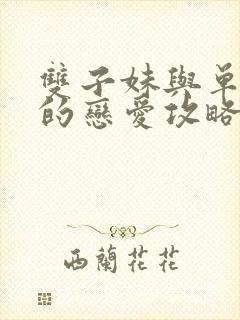 雙子妹與單
的戀愛攻略
西蘭花花